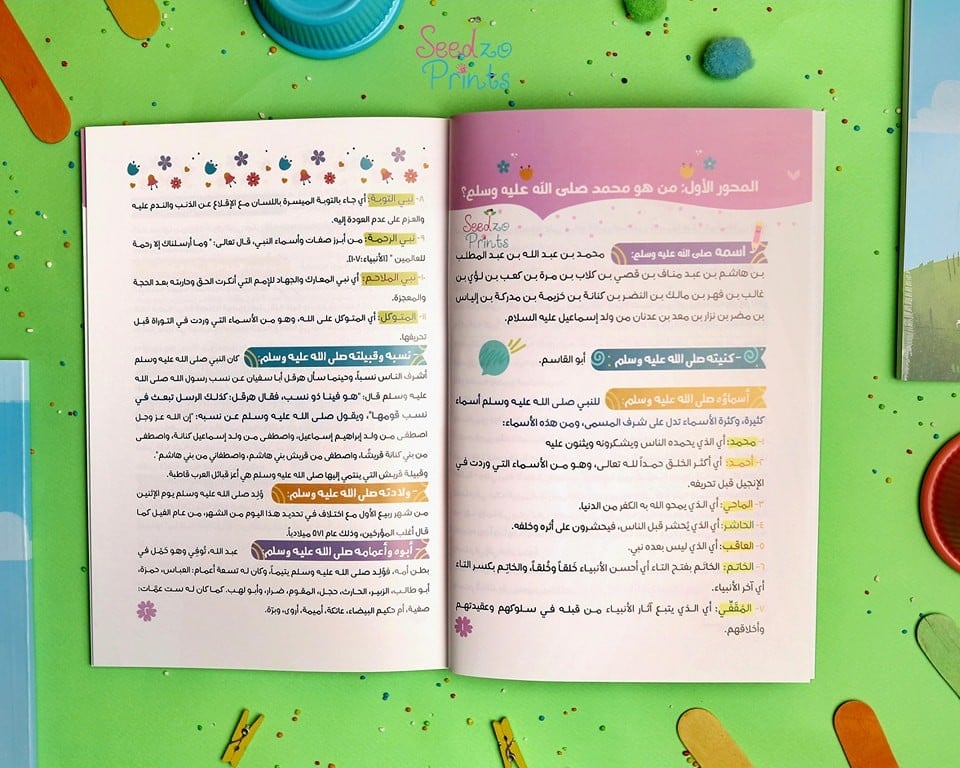 Seedzo
Prints
المحور الأول: من هو محمد صلى الله عليه وسلم؟
Seedzo
Prints
اسمه صلى الله عليه وسلم: محمد بن عبد الله بن عبد المطلب
بن هاشم بن عبد مناف بن قصي بن كلاب بن مرة بن كعب بن لؤي بن
غالب بن فهر بن مالك بن النضر بن كنانة بن خزيمة بن مدركة بن إلياس
بن مضر بن نزار بن معد بن عدنان من ولد إسماعيل عليه السلام.
- كنيته صلى الله عليه وسلم: أبو القاسم.
أسماؤه صلى الله عليه وسلم: للنبي صلى الله عليه وسلم أسماء
كثيرة، وكثرة الأسماء تدل على شرف المسمى، ومن هذه الأسماء:
١- محمد: أي الذي يحمده الناس ويشكرونه ويثنون عليه
٢- أحمد: أي أكثر الخلق حمداً لله تعالى، وهو من الأسماء التي وردت في
الإنجيل قبل تحريفه.
٣- الماحي: أي الذي يمحو الله به الكفر من الدنيا.
٤- الحاشر: أي الذي يُحشر قبل الناس، فيحشرون على أثره وخلفه.
٥- العاقب: أي الذي ليس بعده نبي.
٦- الخاتم: الخاتَم بفتح التاء أي أحسن الأنبياء خَلقاً وخُلقاً، والخاتِم بكسر التاء
أي آخر الأنبياء.
٧- المُقَفِّي: أي الذي يتبع آثار الأنبياء من قبله في سلوكهم وعقيدتهم
وأخلاقهم.
١
٨- نبي التوبة: أي جاء بالتوبة الميسرة باللسان مع الإقلاع عن الذنب والندم عليه
والعزم على عدم العودة إليه.
٩- نبي الرحمة: من أبرز صفات وأسماء النبي، قال تعالى: "وما أرسلناك إلا رحمة
للعالمين" [الأنبياء:١٠٧].
١٠- نبي الملاحم: أي نبي المعارك والجهاد للإمم التي أنكرت الحق وحاربته بعد الحجة
والمعجزة.
١١- المتوكل: أي المتوكل على الله، وهو من الأسماء التي وردت في التوراة قبل
تحريفها.
- نسبه وقبيلته صلى الله عليه وسلم: كان النبي صلى الله عليه وسلم
أشرف الناس نسباً، وحينما سأل هرقل أبا سفيان عن نسب رسول الله صلى الله
عليه وسلم قال: "هو فينا ذو نسب، فقال هرقل: كذلك الرسل تبعث في
نسب قومها"، ويقول صلى الله عليه وسلم عن نسبه: "إن الله عز وجل
اصطفى من ولد إبراهيم إسماعيل، واصطفى من ولد إسماعيل كنانة، واصطفى
من بني كنانة قريشًا، واصطفى من قريش بني هاشم، واصطفاني من بني هاشم".
وقبيلة قريش التي ينتمي إليها صلى الله عليه وسلم هي أعز قبائل العرب قاطبة.
- ولادته صلى الله عليه وسلم: وُلِد صلى الله عليه وسلم يوم الإثنين
من شهر ربيع الأول مع اختلاف في تحديد هذا اليوم من الشهر، من عام الفيل كما
قال أغلب المؤرخين، وذلك عام ٥٧١ ميلادياً.
- أبوه وأعمامه صلى الله عليه وسلم: عبد الله، تُوفِي وهو حَمْل في
بطن أمه، فوُلِد صلى الله عليه وسلم يتيماً، وكان له تسعة أعمام: العباس، حمزة،
أبو طالب، الزبير، الحارث، حجل، المقوم، ضرار، وأبو لهب. كما كان له ست عمّات:
صفية، أم حكيم البيضاء، عاتكة، أميمة، أروى، وبرّة.
٢